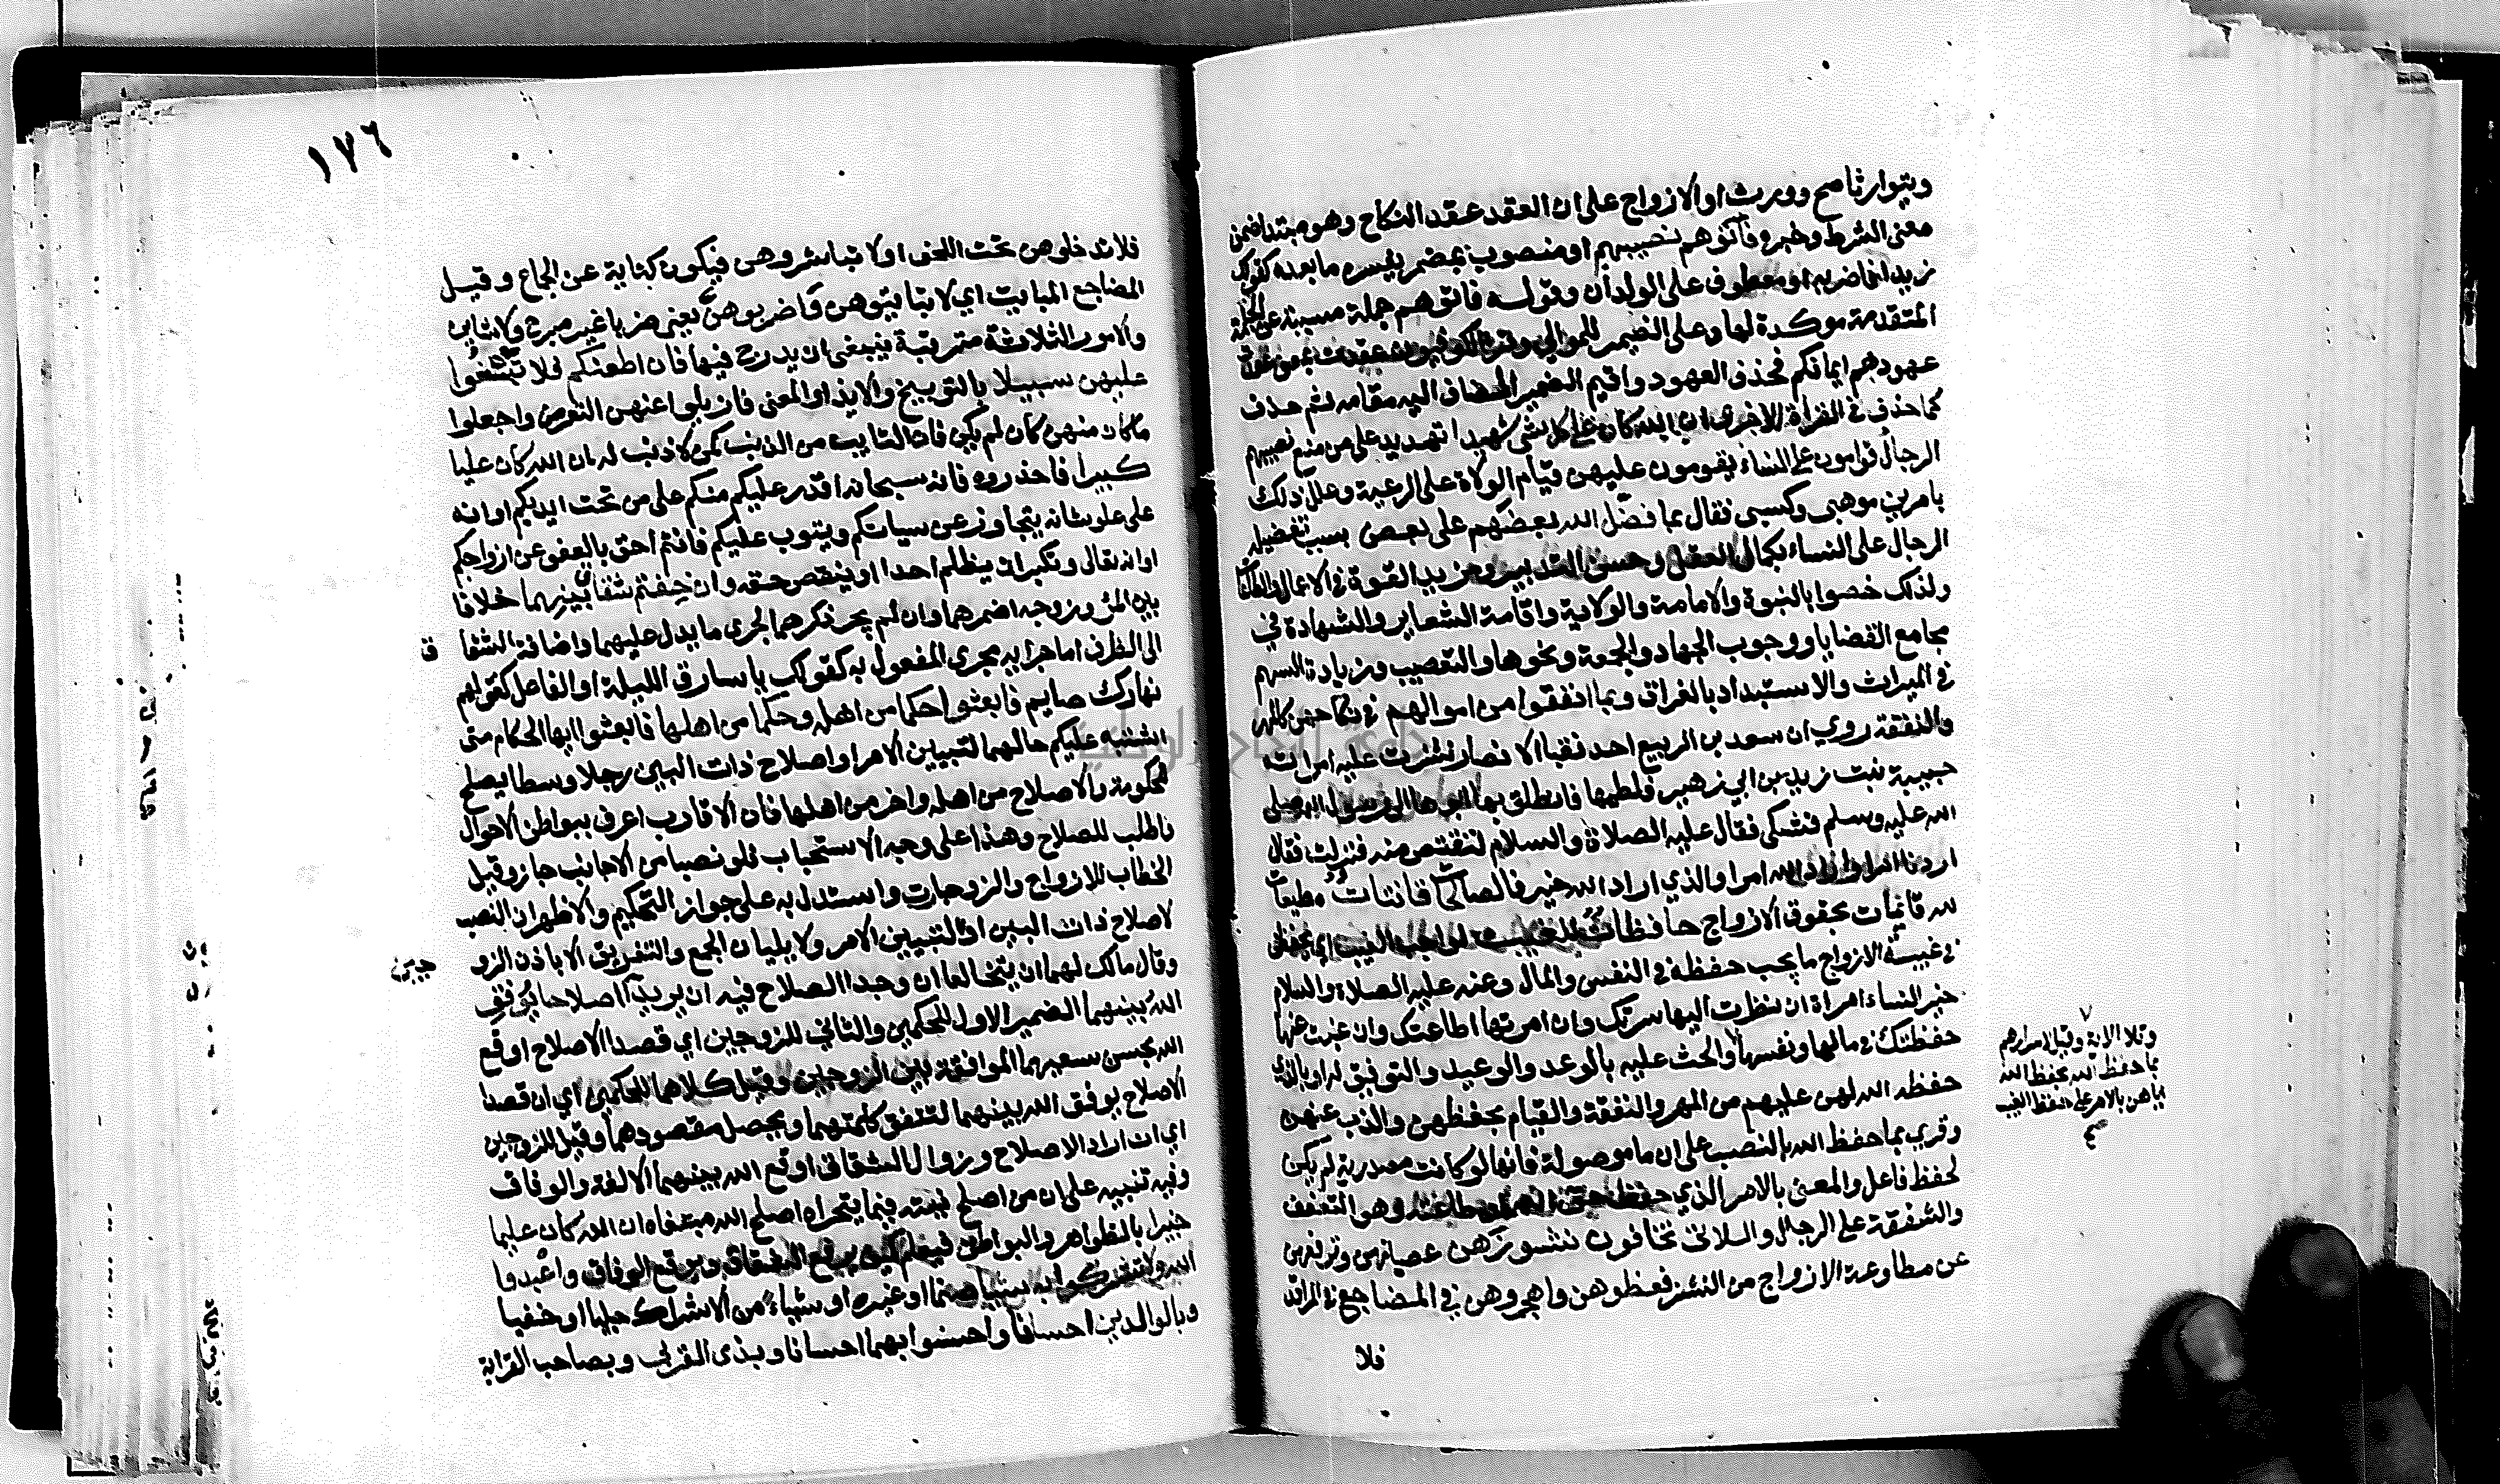 ويتوارثا صح وورث او الازواج على ان العقد عقد النكاح وهو مبتدا ضمن
معنى الشرط وخبره فآتوهم نصيبهم او منصوب بمضمر يفسره ما بعده كقولك
زيدا فاضربه او معطوف على الولدان وقوله فاتوهم جملة مسببة عن الجملة
المتقدمة موكدة لها وعلى الضمير للموالي وقرا الكوفيون عقدت بمعنى عقدت
عهودهم ايمانكم فحذف العهود واقيم الضمير المضاف اليه مقامه ثم حذف
كما حذف في القراة الاخرى ان الله كان على كل شي شهيدا تهديد على من منع نصيبهم
الرجال قوامون على النساء يقومون عليهن قيام الولاة على الرعية وعلل ذلك
بامرين موهبي وكسبي فقال بما فضل الله بعضهم على بعض بسبب تفضيله
الرجال على النساء بكمال العقل وحسن التدبير ومزيد القوة في الاعمال والطاعات
ولذلك خصوا بالنبوة والامامة والولاية واقامة الشعاير والشهادة في
مجامع القضايا ووجوب الجهاد والجمعة ونحوها والتعصيب وزيادة السهم
في الميراث والاستبداد بالفراق وبما انفقوا من اموالهم في نكاحهن كالمهر
والنفقة روي ان سعد بن الربيع احد نقبا الانصار نشزت عليه امراته
حبيبة بنت زيد بن ابي زهير فلطمها فانطلق بها ابوها الى رسول الله صلى
الله عليه وسلم فشكى فقال عليه الصلاة والسلام لنقتص منه فنزلت فقال
اردنا امرا واراد الله امرا والذي اراد الله خير فالصالحات قانتات مطيعات
لله قائمات بحقوق الازواج حافظات للغيب لمواجب الغيب اي يحفظن
في غيبة الازواج ما يجب حفظه في النفس والمال وعنه عليه الصلاة والسلام
خير النساء امراة ان نظرت اليها سرتك وان امرتها اطاعتك وان غبت عنها
حفظتك في مالها ونفسها والحث عليه بالوعد والوعيد والتوفيق له او بالذي
حفظه الله لهن عليهم من المهر والنفقة والقيام بحفظهن والذب عنهن
وقري بما حفظ الله بالنصب على ان ما موصولة فانها لو كانت مصدرية لم يكن
لحفظ فاعل والمعنى بالامر الذي حفظ حق الله وطاعته وهو التعفف
والشفقة على الرجال واللاتي تخافون نشوزهن عصيانهن وترفعهن
عن مطاوعة الازواج من النشز فعظوهن واهجروهن في المضاجع في المراقد
فلا
وتلا الاية وقيل لاسرارهم
بما حفظ الله بحفظ الله
اياهن بالامر على حفظ الغيب
صح
١٧٦
فلا تدخلوهن تحت اللحف او لا تباشروهن فيكون كناية عن الجماع وقيل
المضاجع المبايت اي لا تبايتوهن واضربوهن يعني ضربا غير مبرح ولا شاين
والامور الثلاثة مترتبة ينبغي ان يدرج فيها فان اطعنكم فلا تبغوا
عليهن سبيلا بالتوبيخ والايذا والمعنى فازيلوا عنهن التعرض واجعلوا
ما كان منهن كان لم يكن فان التايب من الذنب كمن لا ذنب له ان الله كان عليا
كبيرا فاحذروه فانه سبحانه اقدر عليكم منكم على من تحت ايديكم او انه
على علو شانه يتجاوز عن سياتكم ويتوب عليكم فانتم احق بالعفو عن ازواجكم
او انه تعالى وتكبر ان يظلم احدا او ينقص حقه وان خفتم شقاق بينهما خلافا
بين المرء وزوجه اضمرهما وان لم يجر ذكرهما لجرى ما يدل عليهما واضافة الشقا ق
الى الظرف اما اجرايه مجرى المفعول به كقولك يا سارق الليلة او الفاعل كقولهم
نهارك صايم فابعثوا حكما من اهله وحكما من اهلها فابعثوا ايها الحكام متى
اشتبه عليكم حالهما لتبيين الامر او اصلاح ذات البين رجلا وسطا يصلح
للحكومة والاصلاح من اهله واخر من اهلها فان الاقارب اعرف ببواطن الاحوال
واطلب للصلاح وهذا على وجه الاستحباب فلو نصبا من الاجانب جاز وقيل
الخطاب للازواج والزوجات واستدل به على جواز التحكيم والاظهر ان النصب
لاصلاح ذات البين او لتبيين الامر ولا يليان الجمع والتفريق الا باذن الزو جين
وقال مالك لهما ان يتخالعا ان وجدا الصلاح فيه ان يريدا اصلاحا يوفق
الله بينهما الضمير الاول للحكمين والثاني للزوجين اي قصدا الاصلاح اوقع
الله بحسن سعيهما الموافقة بين الزوجين وقيل كلاهما للحكمين اي ان قصدا
الاصلاح يوفق الله بينهما لتتفق كلمتهما ويحصل مقصودهما وقيل للزوجين
اي ان اراد الاصلاح وزوال الشقاق اوقع الله بينهما الالفة والوفاق
وفيه تنبيه على ان من اصلح نيته فيما يتحراه اصلح الله مبتغاه ان الله كان عليما
خبيرا بالظواهر والبواطن فيعلم كيف يرفع الشقاق ويوقع الوفاق واعبدوا
الله ولا تشركوا به شيئا صنما او غيره او شياء من الاشراك جليا او خفيا
وبالوالدين احسانا واحسنوا بهما احسانا وبذى القربى وبصاحب القرابة
جامعة النجاح الوطنية